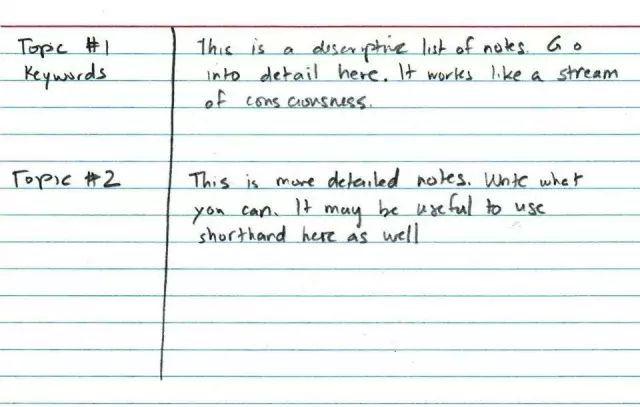 Topic #1
Keywords
This is a descriptive list of notes. Go
into detail here. It works like a stream
of consciousness.
Topic #2
This is more detailed notes. Write what
you can. It may be useful to use
shorthand here as well